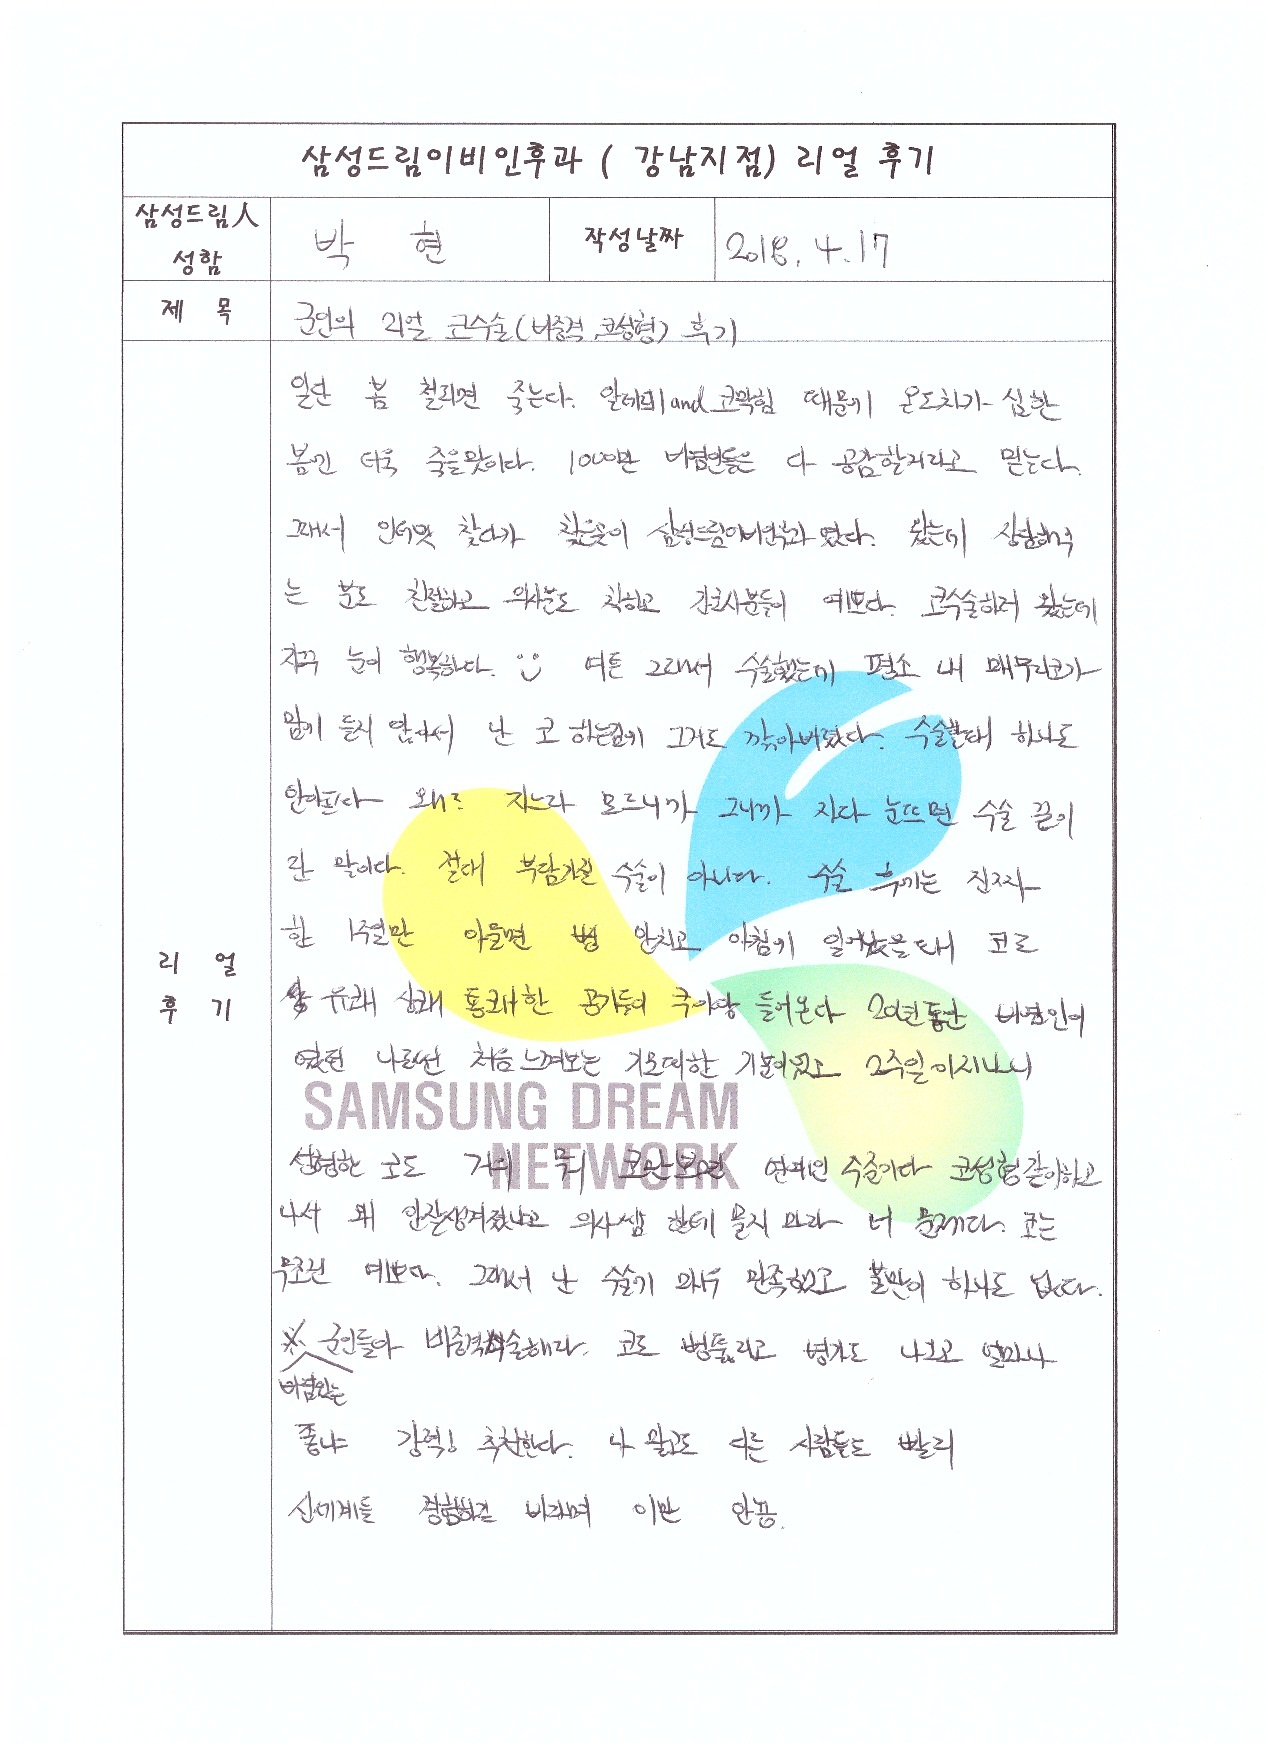 삼성드림이비인후과 ( 강남지점) 리얼 후기
삼성드림人
성함
박 현
작성날짜
2018. 4. 17
제 목
군인의 리얼 코수술(비중격, 코성형) 후기
리 얼
후 기
일단 봄 철되면 죽는다. 알레르기 and 코막힘 때문에 온도차가 심한
봄엔 더욱 죽을맛이다. 1000만 비염인들은 다 공감할거라고 믿는다.
그래서 인터넷 찾다가 찾은곳이 삼성드림이비인후과 였다. 왔는데 상담해주
는 분도 친절하고 의사분도 착하고 간호사분들이 예쁘다. 코수술하러 왔는데
자꾸 눈이 행복하다. 여튼 그래서 수술했는데 평소 내 매부리코가
맘에 들지 않아서 난 코 하는김에 그거도 깎아버렸다. 수술할때 하나도
안아프다 왜 자느라 모르니까 그니까 자다 눈뜨면 수술 끝이
란 말이다. 절대 부담가질 수술이 아니다. 수술 후기는 진짜
한 1주일만 아프면 뻥 안치고 아침에 일어났을때 코로
유쾌 상쾌 통쾌한 공기들이 쿠아앙 들어온다 20년동안 비염인이
였던 나로썬 처음 느껴보는 기분이였고 2주일이 지나니
성형한 코도 거의 뭐 코만보면 연예인 수준이다 코성형같이하고
나서 왜 안잘생겨졌냐고 의사쌤 한테 묻지 마라 너 문제다. 코는
무조건 예쁘다. 그래서 난 수술에 매우 만족했고 불만이 하나도 없다.
※ 군인들아 비중격수술해라. 코도 뻥뚫리고 병가도 나오고 얼마나
비염있는
좋냐 강력! 추천한다. 나 말고도 다른 사람들도 빨리
신세계를 경험하길 바라며 이만 안뇽.
SAMSUNG DREAM
NETWORK